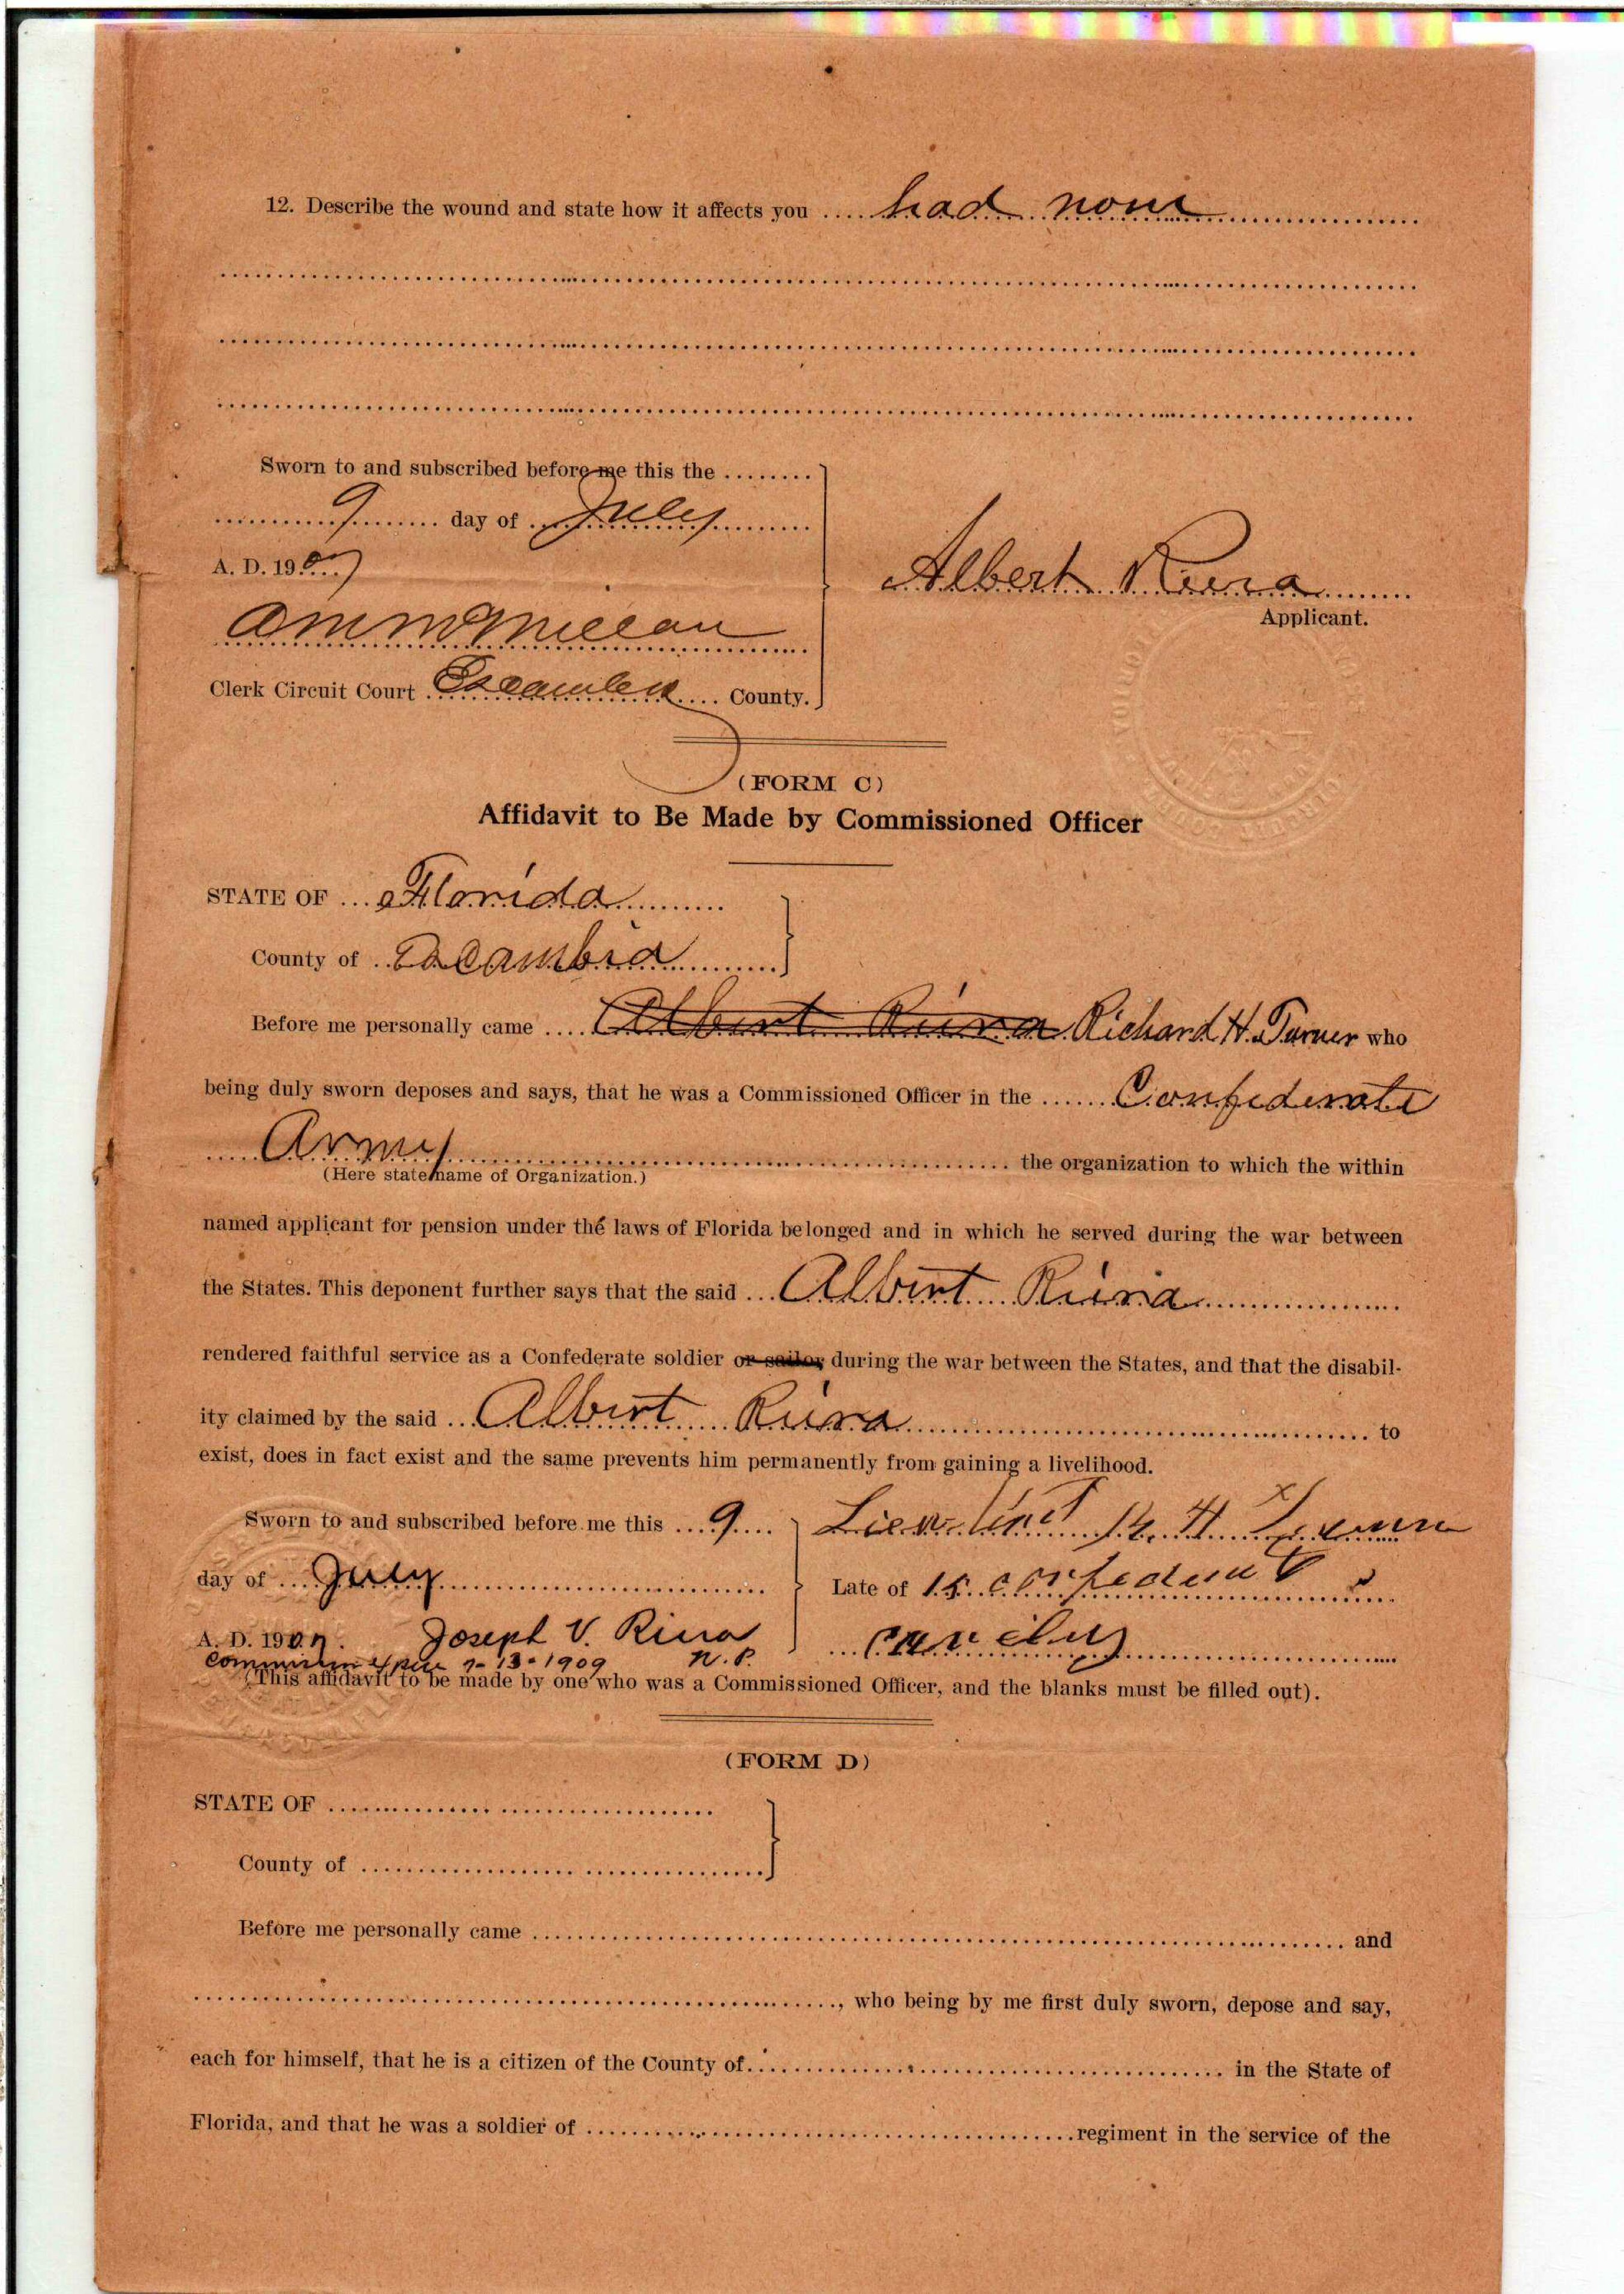 12. Describe the wound and state how it affects you .... had none
Sworn to and subscribed before me this the ........
9 day of July
A. D. 1907
Albert Riera
Applicant.
A M McMillan
Clerk Circuit Court Escambia County.
(FORM C)
Affidavit to Be Made by Commissioned Officer
STATE OF ... Florida
County of .. Escambia
Before me personally came .... Albert Riera Richard H. Turner who
being duly sworn deposes and says, that he was a Commissioned Officer in the ...... Confederate
Army the organization to which the within
(Here state name of Organization.)
named applicant for pension under the laws of Florida belonged and in which he served during the war between
the States. This deponent further says that the said ... Albert Riera
rendered faithful service as a Confederate soldier or sailor during the war between the States, and that the disabil-
ity claimed by the said .. Albert Riera to
exist, does in fact exist and the same prevents him permanently from gaining a livelihood.
Sworn to and subscribed before me this ... 9 .... R. H.
day of .... July
Late of 15 Confederate
A. D. 1907. Joseph V. Riera
Commission expires 7-13-1909 N. P.
(This affidavit to be made by one who was a Commissioned Officer, and the blanks must be filled out).
(FORM D)
STATE OF
County of
Before me personally came and
, who being by me first duly sworn, depose and say,
each for himself, that he is a citizen of the County of in the State of
Florida, and that he was a soldier of regiment in the service of the